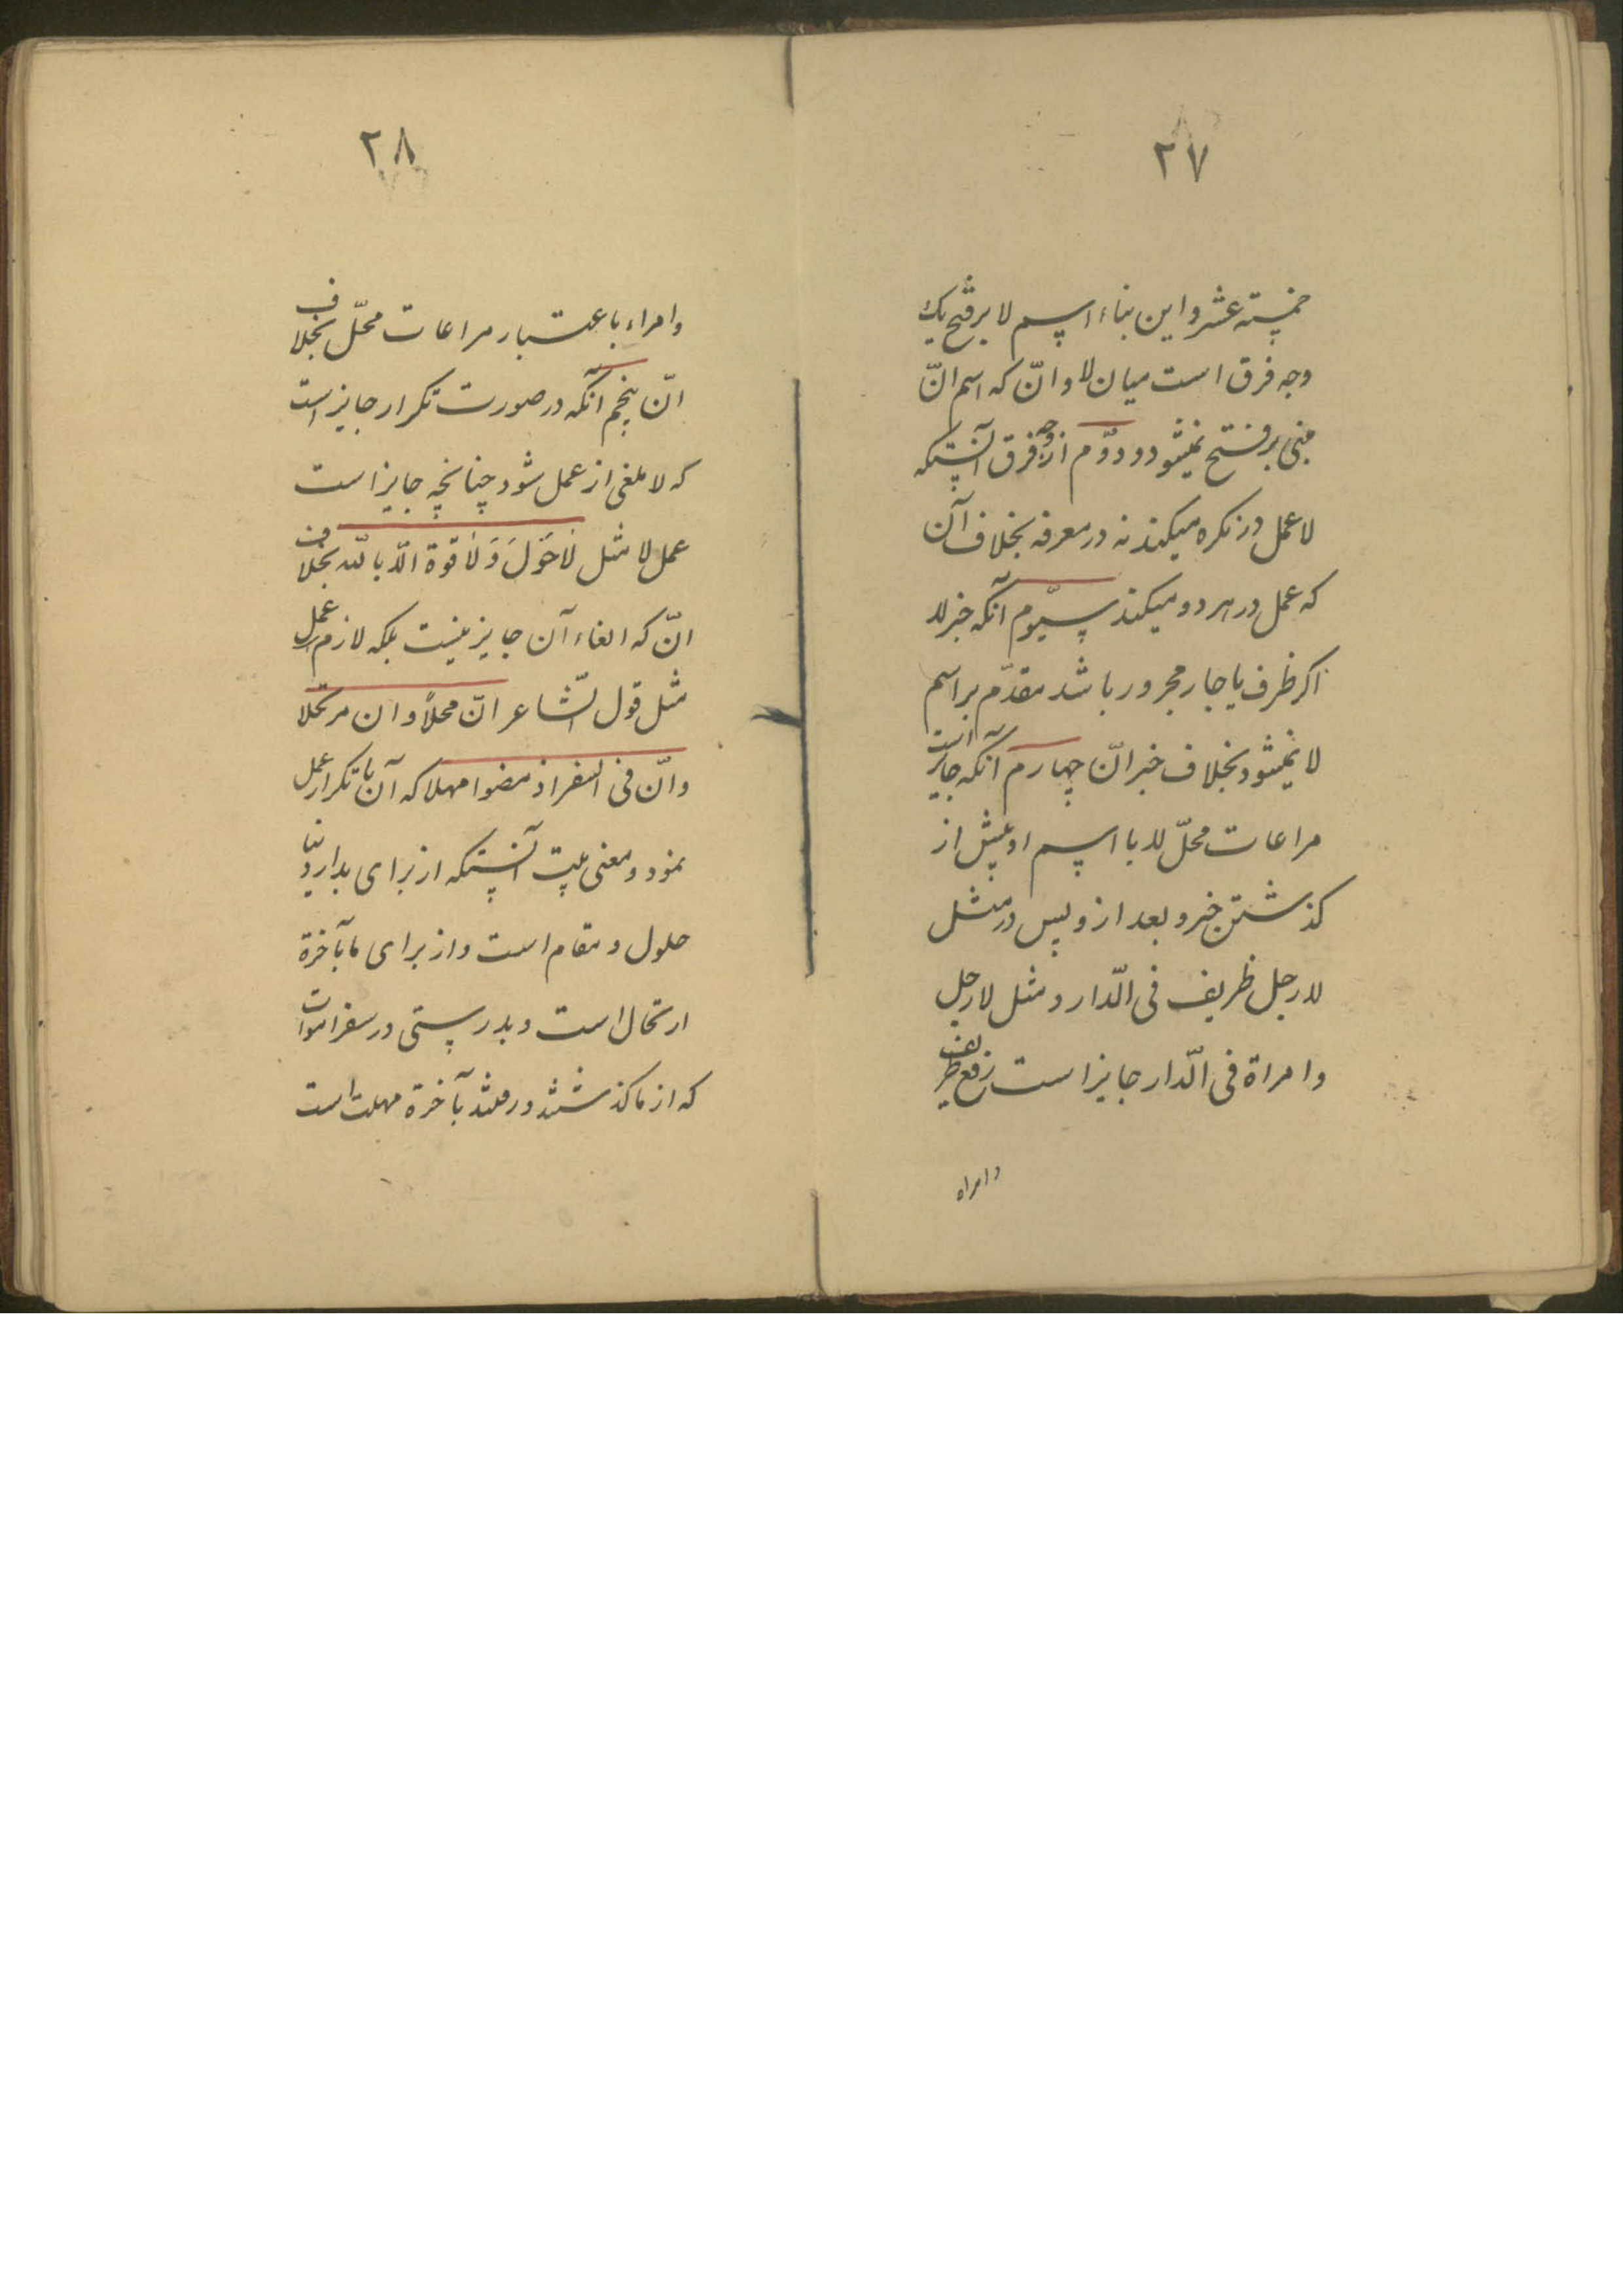 ۲۷
خمسة عشر و این بناء اسم لا بر فتح یک
وجه فرق است میان لا و انّ که اسم انّ
مبنی بر فتح نمیشود و دوّم از وجه فرق آنستکه
لا عمل در نکره میکند نه در معرفه بخلاف آن
که عمل در هر دو میکند سیّوم آنکه خبر لا
اکر ظرف یا جار مجرور باشد مقدّم بر اسم
لا نمیشود بخلاف خبر انّ چهارم آنکه جایز است
مراعات محلّ لا با اسم او پیش از
کذشتن خبر و بعد از و پس در مثل
لا رجل ظریف فی الدّار و مثل لا رجل
و امراة فی الدّار جایز است رفع ظریف
و امراه
۲۸
و امراء باعتبار مراعات محلّ بخلاف
انّ پنجم آنکه در صورت تکرار جایز است
که لا ملغی از عمل شود چنانچه جایز است
عمل لا مثل لَا حَوْلَ وَ لَا قوة الّا بالله بخلاف
انّ که الغاء آن جایز نیست بلکه لازم عمل
مثل قول الشّاعر انّ محلاً و ان مرتحلا
و انّ فی السفر اذ مضوا مهلا که آن با تکرار عمل
نمود و معنی بیت آنستکه از برای ما در دنیا
حلول و مقام است و از برای ما بآخرة
ارتحال است و بدرستی در سفر اموات
که از ما کذشتند و رفتند بآخرة مهلت است